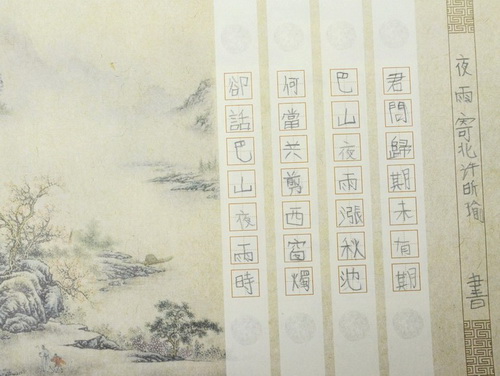 夜雨寄北許昕瑜 書
君問歸期未有期
巴山夜雨漲秋池
何當共剪西窗燭
卻話巴山夜雨時